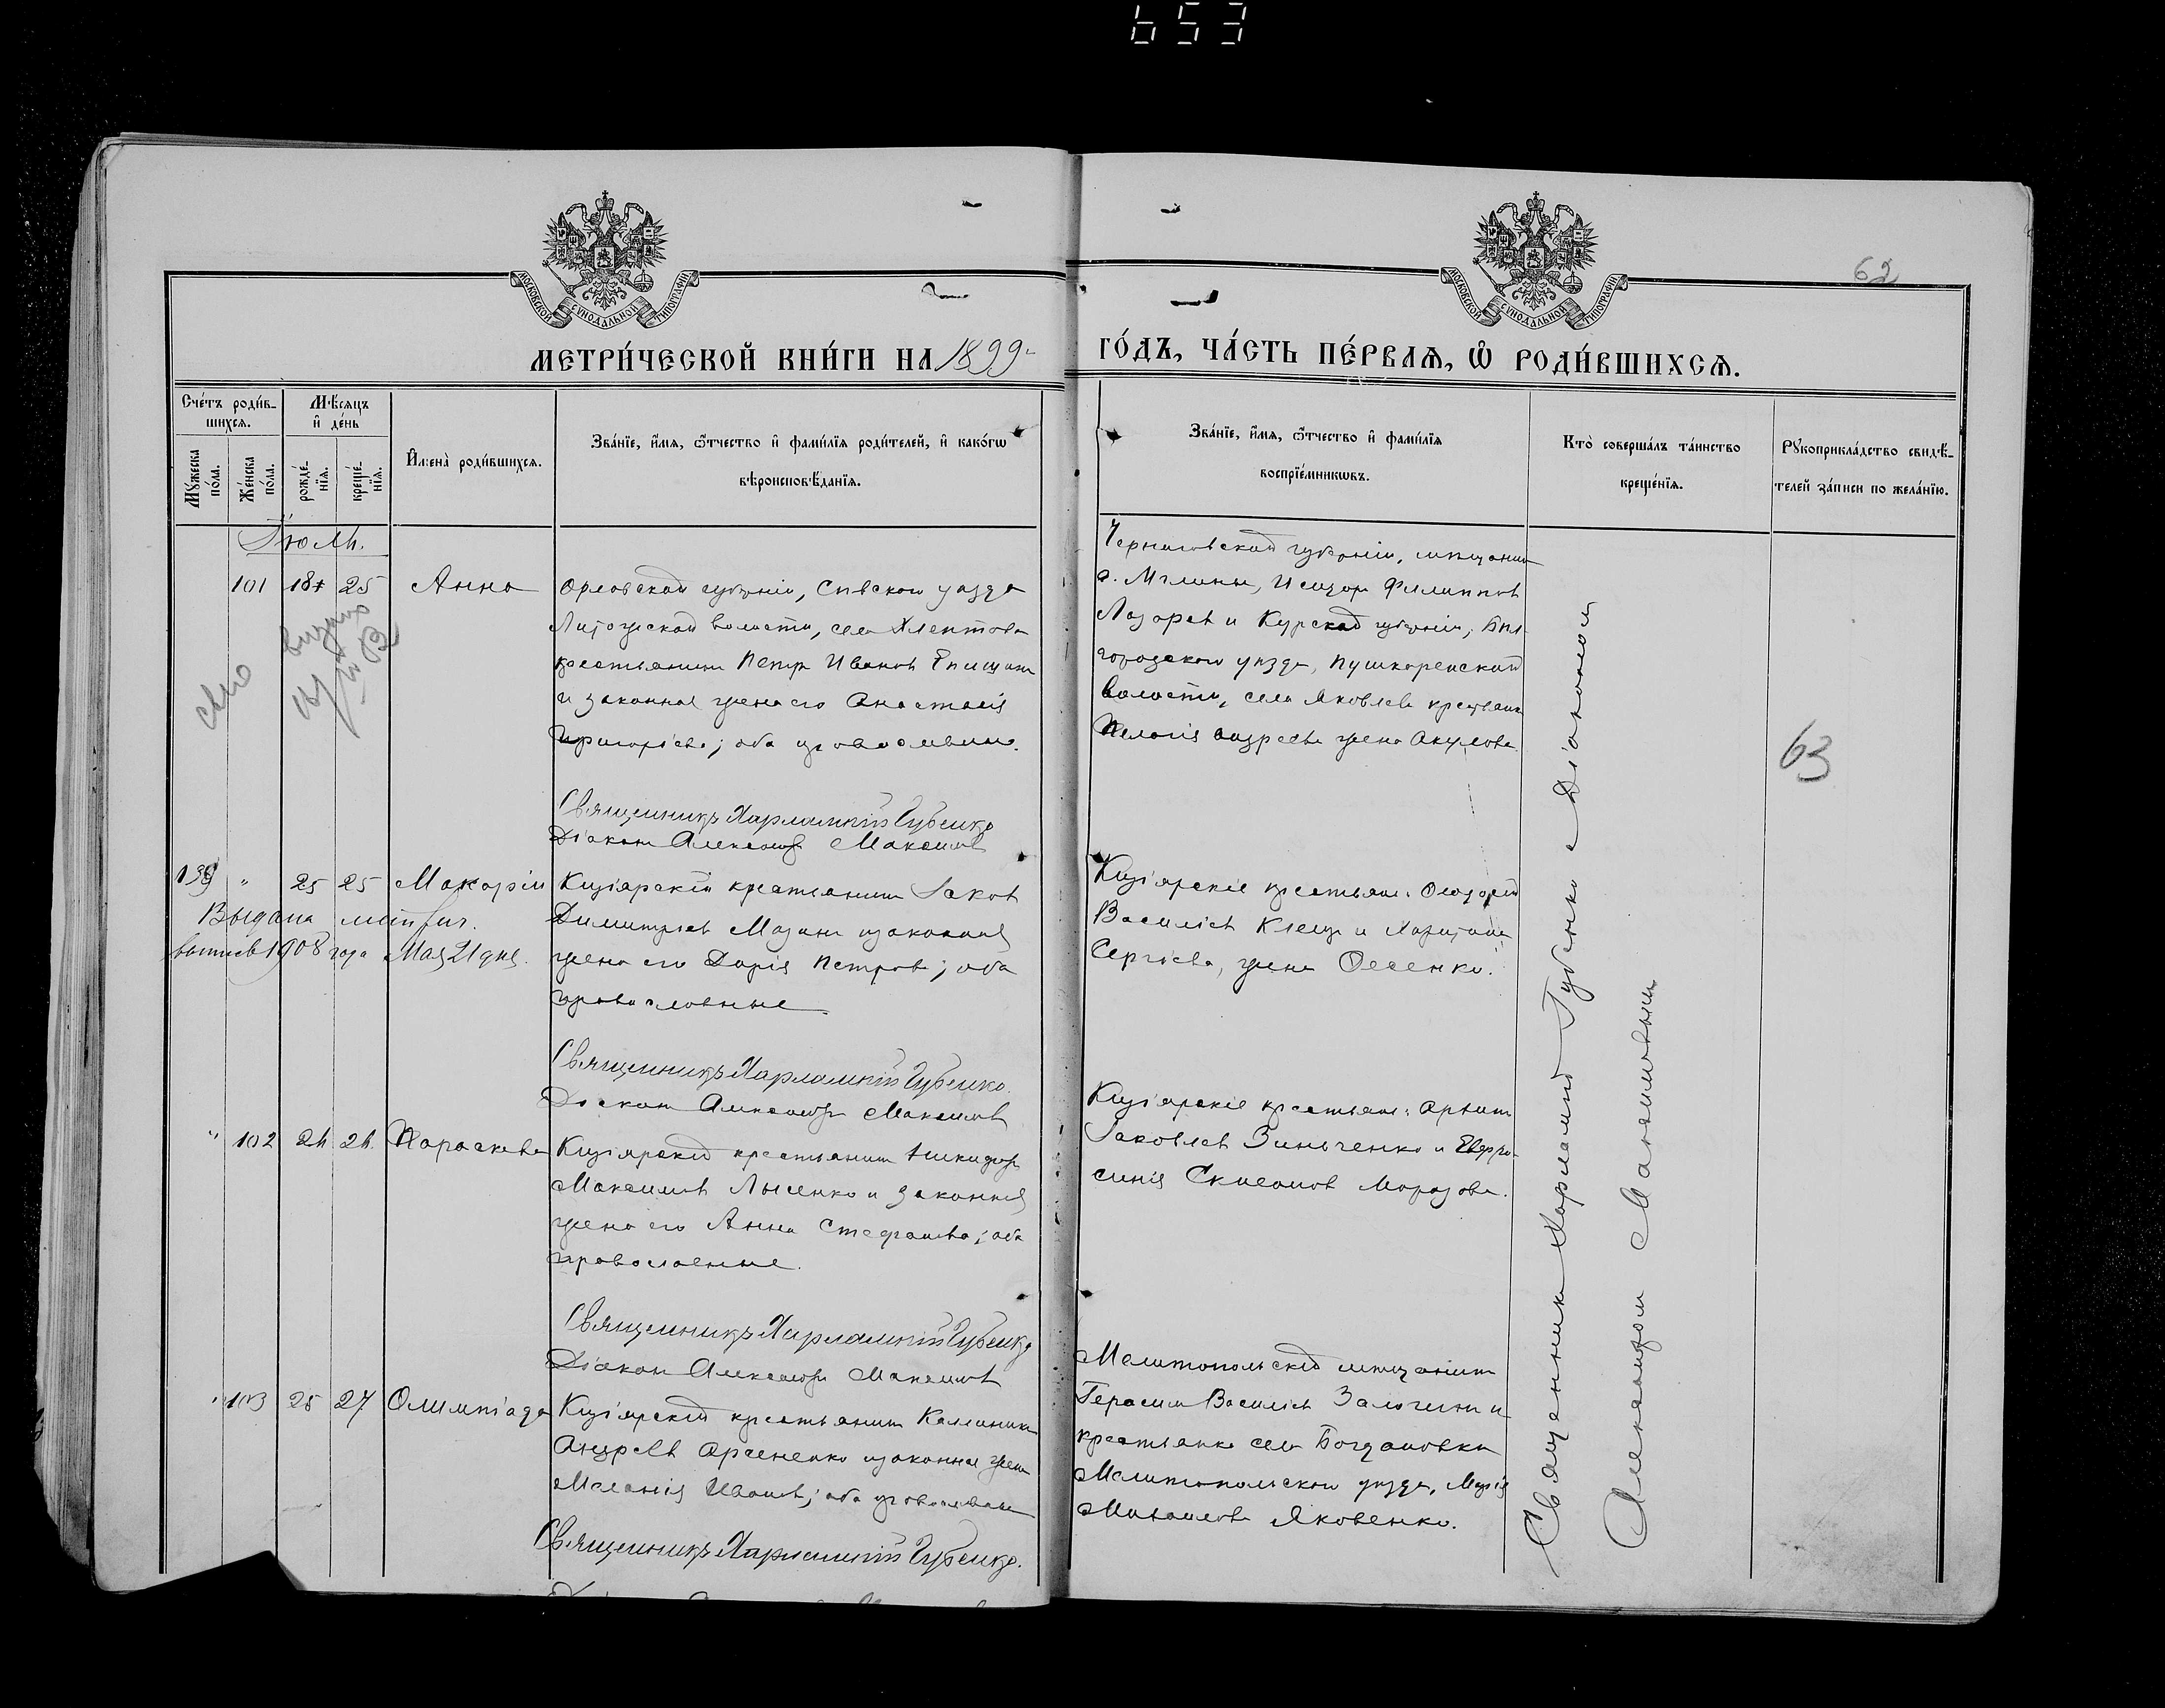 653
62
МОСКОВСКОЙ СѴНОДАЛЬНОЙ ТИПОГРАФІИ
МОСКОВСКОЙ СѴНОДАЛЬНОЙ ТИПОГРАФІИ
МЕТРИ́ЧЕСКОЙ КНИ́ГИ НА 1899
ГО́ДЪ, ЧА́СТЬ ПЕ́РВАЯ, Ѽ РОДИ́ВШИХСЯ.
Сче́тъ роди́в-
шихся.
Мꙋ́жеска по́ла.
Же́нска по́ла.
Мѣ́сяцъ и҆ де́нь
рожде́-нїѧ.
креще́-нїѧ.
И҆мена̀ роди́вшихся.
Зва́нїе, и҆́мя, ѻ҆́тчество и҆ фами́лїя роди́телей, и҆ како́гѡ
вѣроисповѣ́данїя.
Зва́нїе, и҆́мя, ѻ҆́тчество и҆ фами́лїя
воспрїе́мникѡвъ.
Кто̀ соверша́лъ та́инство
креще́нїя.
Рꙋкоприкла́дство свидѣ́-
телей за́писи по жела́нїю.
Іюль.
101 18 25 Анна
Орловской губерніи, Сѣвскаго уѣзда
волости, села
крестьянинъ Петръ Ивановъ
и законная жена его Анастасія
Григорьева; оба православные.
Священникъ Харлампій Губенко
Діаконъ Александръ Максимовъ
Черниговской губерніи, мѣщанинъ
г. Мглина, Исидоръ Филипповъ
Лазаревъ и Курской губерніи, Бѣл-
городскаго уѣзда, Пушкаренской
волости, села Яковлева крестьянка
Пелагія Андреева жена Акулова
63
139 " 25 25 Макарій
Выдана метрич.
выпись 1908 года Мая 21 дня.
Кизіярскій крестьянинъ Іаковъ
Димитріевъ Мазанъ и законная
жена его Дарія Петрова; оба
православные
Священникъ Харлампій Губенко.
Діаконъ Александръ Максимовъ
Кизіярскіе крестьяне: Ѳеодоръ
Василіевъ Клещъ и
Сергіева, жена Овсенко.
" 102 24 24 Параскева
Кизіярскій крестьянинъ Никифоръ
Максимовъ Лысенко и законная
жена его Анна Стефанова; оба
православные.
Священникъ Харлампій Губенко
Діаконъ Александръ Максимовъ
Кизіярскіе крестьяне:
Іаковлевъ Зинченко и Евфро-
синія Морозова.
" 103 25 27 Олимпіада
Кизіярскій крестьянинъ Каллиникъ
Андреевъ Арсененко и законная жена
Меланія Иванова; оба православные
Священникъ Харлампій Губенко.
Мелитопольскій мѣщанинъ
Герасимъ Василіевъ и
крестьянка села Богдановки
Мелитопольскаго уѣзда, Марія
Михаилова Яковенко.
Священникъ Харлампій Губенко с Діакономъ
Александромъ Максимовымъ